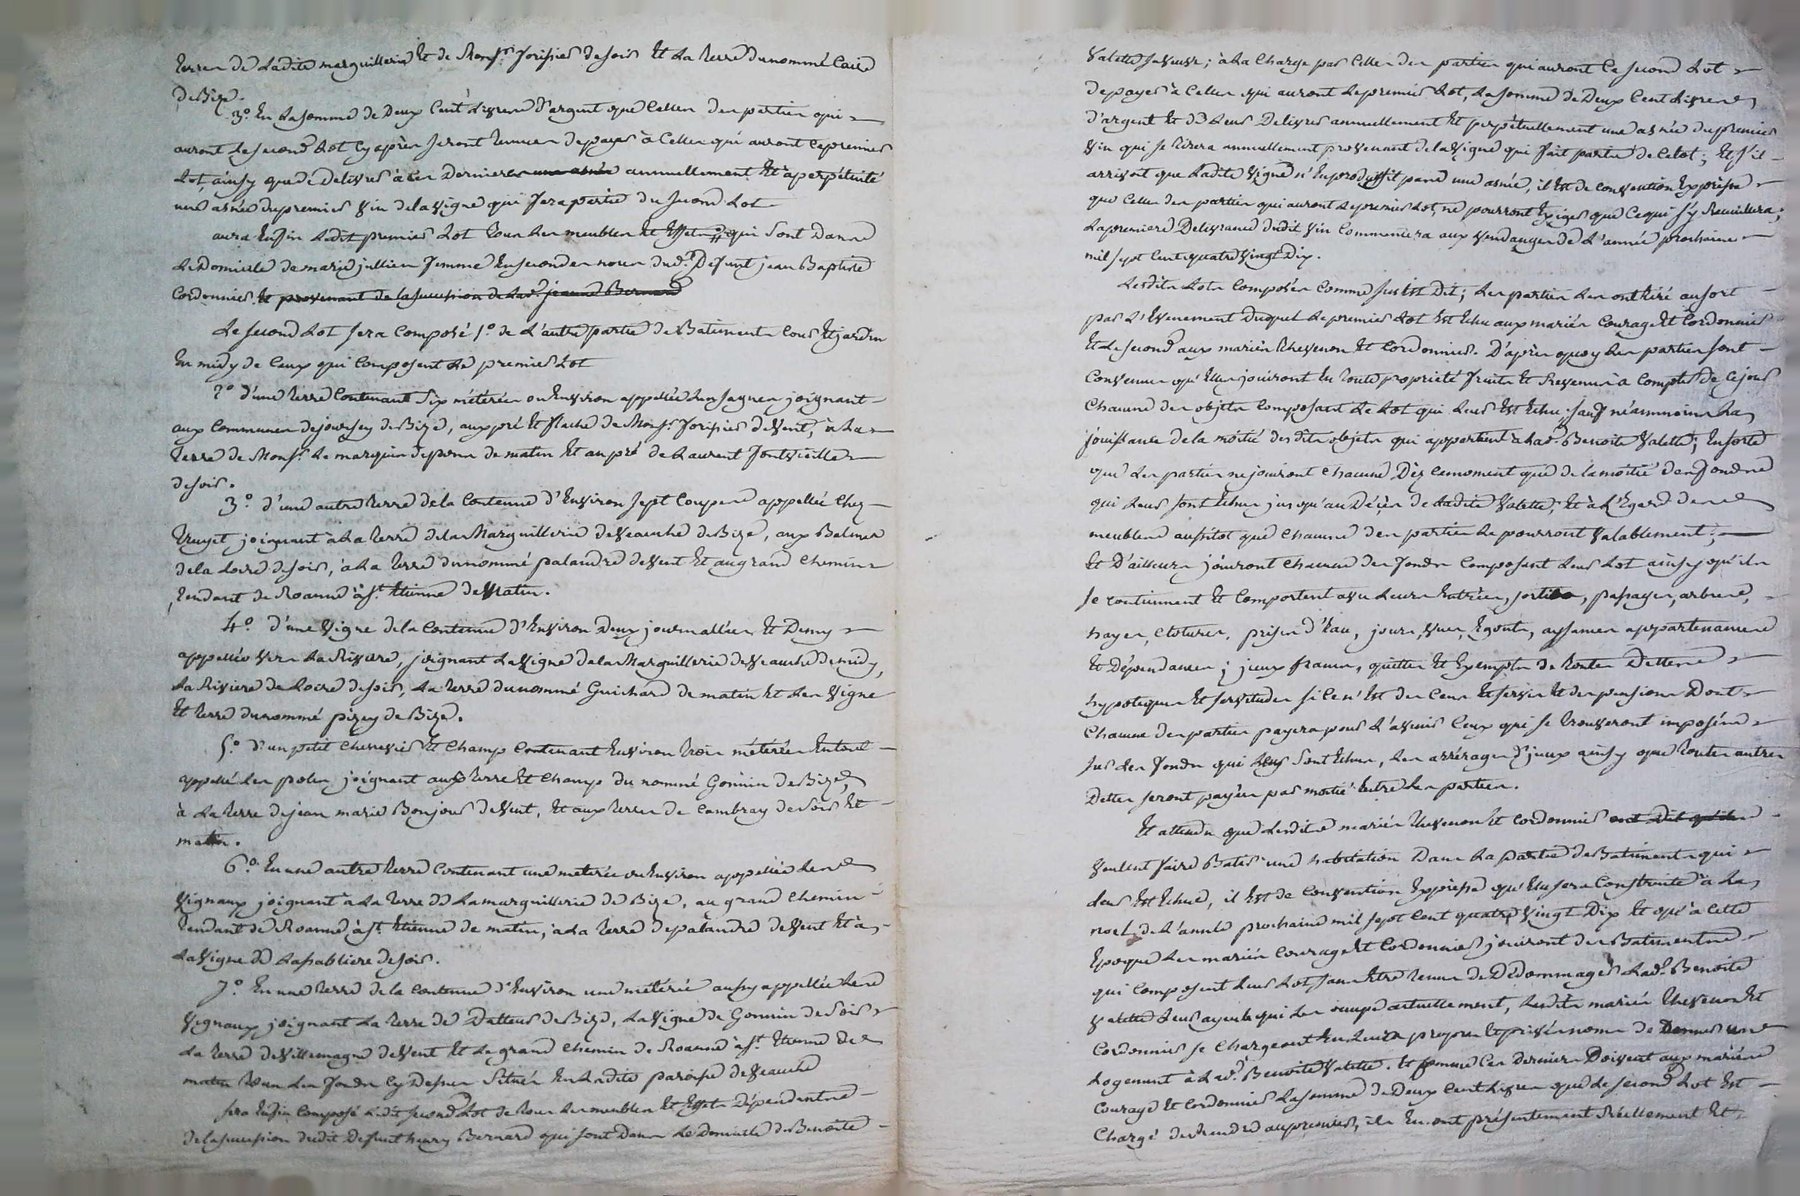 terres de ladite marguillerie et de Monsr. forissier de soir et la terre du nommé Caire
de Bize.
3.o En la somme de Deux Cent Livres d'argent que Celles des parties qui
auront le second Lot cy après seront tenues de payer à Celles qui auront le premier
Lot, ainsy que de delivrer à ces Dernieres une asnée annuellement et à perpétuité
une asnée du premier vin de la vigne qui fera partie du second Lot
aura Enfin ledit premier Lot tous les meubles et Effets qui sont Dans
le Domicile de marie jullien femme en secondes noces dud. Défunt jean Baptiste
Cordonnier et provenant de la succession de lad. jeanne Bernard
Le second Lot sera Composé 1.o de L'autre partie de Batiments Cour et jardin
en midy de Ceux qui Composent le premier Lot
2.o d'une terre Contenant Six métérées ou Environ appellée les sagnes joignant
aux Communes de joursey de Bize, aux pré et de Monsr. forissier de vent, à la
terre de Monsr. le marquis de de matin et au pré de Laurent fontvieille
de soir.
3.o d'une autre terre de la Contenue d'Environ sept Coupes appellée Chez
joignant à la terre de la Marguillerie de veauche de Bize, aux Balmes
de la Loire de soir, à la terre du nommé palandre de vent et au grand Chemin
tendant de Roanne à St. Etienne de Matin.
4.o d'une vigne de la Contenue d'Environ Deux journallées et Demy
appellée vers la Riviere, joignant la vigne de la Marguillerie de veauche de midy,
la Riviere de Loire de soir, la terre du nommé Guichard de matin et les vigne
et terre du nommé pizey de Bize.
5.o d'un petit chenevier et Champ Contenant Environ trois métérées En tout
appellé les joignant aux terre et Champ du nommé Gonnin de Bize,
à la terre de jean marie Bonjour de vent, et aux terres de Cambray de soir et
matin.
6.o En une autre terre Contenant une metérée ou Environ appellée les
vignaux joignant à la terre de la marguillerie de Bize, au grand Chemin
tendant de Roanne à St. Etienne de matin, à la terre de palandre de vent et à
la vigne de la sabliere de soir.
7.o En une terre de la Contenue d'Environ une métérée aussy appellée les
vignaux joignant la terre de de Bize, la vigne de Gonnin de soir
la terre de villemagne de vent et le grand Chemin de Roanne à St. Etienne de
matin tous les fonds cy Dessus Situés En ladite paroisse de veauche
sera Enfin Composé ledit second Lot de tous les meubles et Effets dépendants
de la succession dudit Defunt henry Bernard qui sont Dans le Domicile de Benoite
Valette sa veuve; à la Charge par Celles des parties qui auront le second Lot
de payer à Celles qui auront le premier Lot, la somme de Deux Cent Livres
d'argent et de leur Delivrer annuellement et perpétuellement une asnée du premier
vin qui se tirera annuellement provenant de la vigne qui fait partie de Ce lot; et s'il
arrivoit que ladite vigne n'En produisit pas une asnée, il Est de convention Expresse
que Celles des parties qui auront le premier Lot, ne pourront Exiger que Ce qui s'y Recueillera;
la premiere Delivrance dudit vin Commencera aux vendanges de L'année prochaine
mil sept Cent quatre vingt Dix.
Lesdits Lots Composés Comme sus Est Dit; les parties les ont tiré au sort
par L'Evenement Duquel le premier Lot Est Echu aux mariés Courage et Cordonnier
et le second aux mariés thevenon et Cordonnier. D'après quoy les parties sont
convenues qu'Elles jouiront En toute propriété fruits et Revenus à Compter de Ce jour
Chacune des objets Composant le Lot qui leur Est Echu; sauf néanmoins la
jouissance de la moitié desdits objets qui appartient à lad. Benoite Valette; En sorte
que les parties ne jouiront Chacune Dès Ce moment que de la moitié des fonds
qui leur sont Echus jusqu'au Décès de ladite Valette, et à L'Egard des
meubles aussitot que Chacune des parties le pourront valablement;
et D'ailleurs jouiront Chacune des fonds Composant leur Lot ainsy qu'ils
se contiennent et Comportent avec leurs Entrées, sorties, passages, arbres,
hayes, Clotures, prises d'Eau, jours, vues, Egouts, aysances appartenances
et Dépendances; yceux francs, quittes et Exempts de toutes Dettes
hypoteques et servitudes si Ce n'Est des Cens et servis et des pensions Dont
Chacune des parties payera pour L'avenir Ceux qui se trouveront imposés
sur les fonds qui leur sont Echus, les arrérages d'yceux ainsy que toutes autres
Dettes seront payées par moitié Entre les parties.
Et attendu que lesdits mariés thevenon et Cordonnier ont dit qu'ils
veullent faire Batir une habitation Dans la partie de Batiments qui
leur Est Echue, il Est de Convention Expresse qu'Elle sera Construite à la
noel de L'année prochaine mil sept Cent quatre vingt Dix et qu'à Cette
Epoque les mariés Courage et Cordonnier jouiront des Batiments
qui Composent leur Lot, sans Etre tenus de Dédommager lad. Benoite
valette leur ayeule qui les occupe actuellement, lesdits mariés thevenon et
Cordonnier se Chargeant En leurs propres et privés noms de Donner un
Logement à lad. Benoite Valette. Et Comme Ces Derniers Doivent aux mariés
Courage et Cordonnier la somme de Deux Cent Livres que le second Lot Est
Chargé de rendre au premier, ils En ont présentement Réellement et